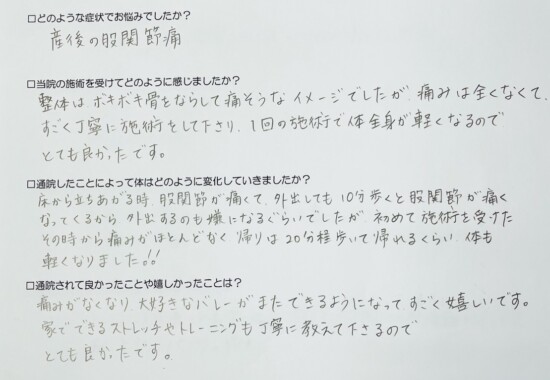 □どのような症状でお悩みでしたか？
産後の股関節痛
□当院の施術を受けてどのように感じましたか？
整体は、ボキボキ骨をならして痛そうなイメージでしたが、痛みは全くなくて、
すごく丁寧に施術をして下さり、1回の施術で体全身が軽くなるので
とても良かったです。
□通院したことによって体はどのように変化していきましたか？
床から立ちあがる時、股関節が痛くて、外出しても10分歩くと股関節が痛く
なってくるから 外出するのも嫌になるぐらいでしたが、初めて施術を受けた
その時から痛みがほとんどなく 帰りは20分程歩いて帰れるくらい、体も
軽くなりました!!
□通院されて良かったことや嬉しかったことは？
痛みがなくなり、大好きなバレーがまたできるようになって すごく嬉しいです。
家でできるストレッチやトレーニングも丁寧に教えて下さるので
とても良かったです。